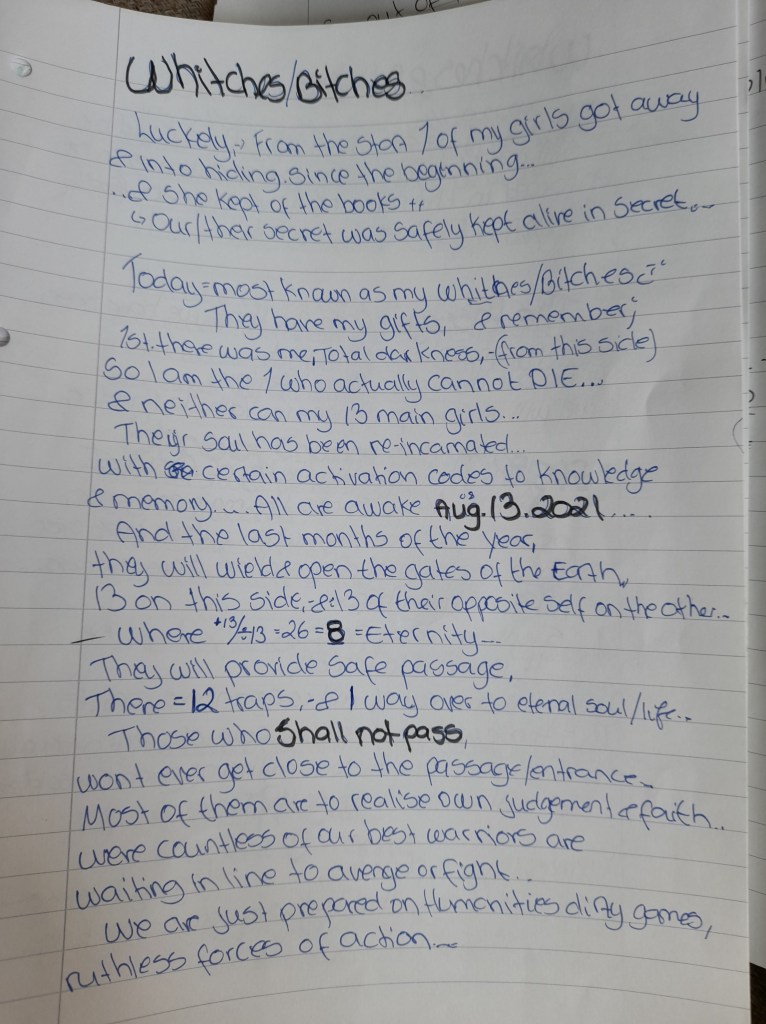 out of
Whitches/Bitches..
Luckely,-> From the start 1 of my girls got away
& into hiding. since the beginning...
..& she kept of the books ++
↳ Our/ther secret was safely kept alive in secret...
Today=most known as my whitches/Bitches
They have my gifts, & remember;
1st. there was me, Total darkness, -(from this side)
So I am the 1 who actually cannot DIE...
& neither can my 13 main girls...
Theyr soul has been re-incarnated...
with certain activation codes to knowledge
& memory.... All are awake Aug.13.2021....
And the last months of the year,
they will wield & open the gates of the Earth,
13 on this side, -& 13 of their opposite self on the other...
— where +13/-13 =26=8 =Eternity...
They will provide safe passage,
There =12 traps, -& 1 way over to eternal soul/life...
Those who Shall not pass,
wont ever get close to the passage/entrance..
Most of them are to realise own judgement & faith..
were countless of our best warriors are
waiting in line to avenge or fight...
We are just prepared on Humanities dirty games,
ruthless forces of action...